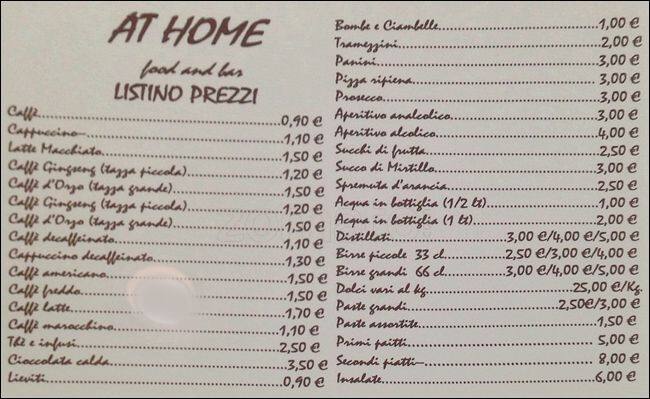 AT HOME
food and bar
LISTINO PREZZI
Caffè 0,90 €
Cappuccino 1,10 €
Latte Macchiato 1,50 €
Caffè Gingseng (tazza piccola) 1,20 €
Caffè d'Orzo (tazza grande) 1,50 €
Caffè Gingseng (tazza piccola) 1,20 €
Caffè d'Orzo (tazza grande) 1,50 €
Caffè decaffeinato 1,10 €
Cappuccino decaffeinato 1,30 €
Caffè americano 1,50 €
Caffè freddo 1,50 €
Caffè latte 1,70 €
Caffè marocchino 1,10 €
Thè e infusi 2,50 €
Cioccolata calda 3,50 €
Lieviti 0,90 €
Bombe e Ciambelle 1,00 €
Tramezzini 2,00 €
Panini 3,00 €
Pizza ripiena 3,00 €
Prosecco 3,00 €
Aperitivo analcolico 3,00 €
Aperitivo alcolico 4,00 €
Succhi di frutta 2,50 €
Succo di Mirtillo 3,00 €
Spremuta d'arancia 2,50 €
Acqua in bottiglia (1/2 lt) 1,00 €
Acqua in bottiglia (1 lt) 2,00 €
Distillati 3,00 €/4,00 €/5,00 €
Birre piccole 33 cl 2,50 €/3,00 €/4,00 €
Birre grandi 66 cl 3,00 €/4,00 €/5,00 €
Dolci vari al kg 25,00 €/Kg.
Paste grandi 2,50€/3,00 €
Paste assortite 1,50 €
Primi paitti 5,00 €
Secondi piatti 8,00 €
Insalate 6,00 €